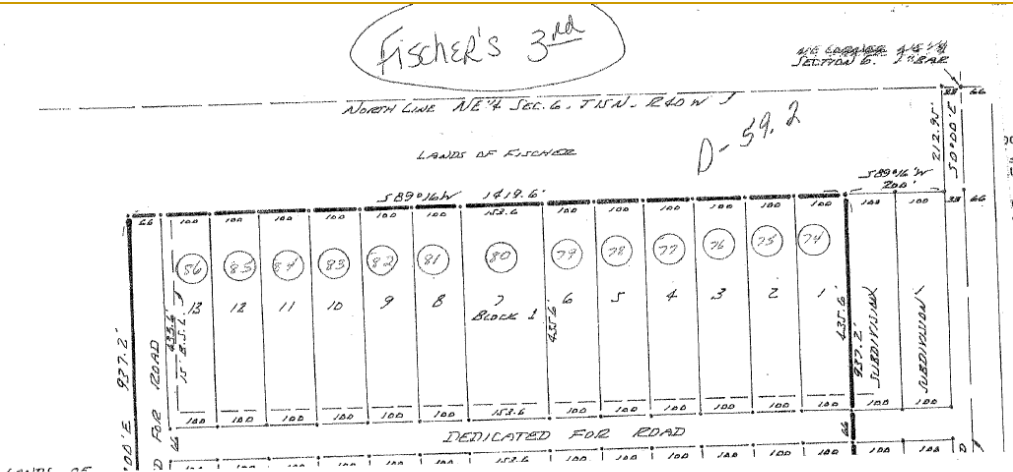 Fischer's 3rd
NE CORNER NE 1/4
SECTION 6. 1" BAR
NORTH LINE NE 1/4 SEC. 6. T15N. R40W
33 66
D-59.2
LANDS OF FISCHER
212.95'
S0°00'E
S89°16'W
200'
S89°16W 1419.6'
66 100 100 100 100 100 100 153.6 100 100 100 100 100 100 33 66
86 85 84 83 82 81 80 79 78 77 76 75 74
13 12 11 10 9 8 7 6 5 4 3 2 1
BLOCK 1
435.6'
15' B.S.L.
435.6'
435.6'
937.2'
SUBDIVISION
SUBDIVISION
937.2'
FOR ROAD
00'E
100 100 100 100 100 100 153.6 100 100 100 100 100 100 100 100
66
DEDICATED FOR ROAD
66
LANDS OF
100 100 100 100 100 153.6 100 100 100 100 100 100 100 100